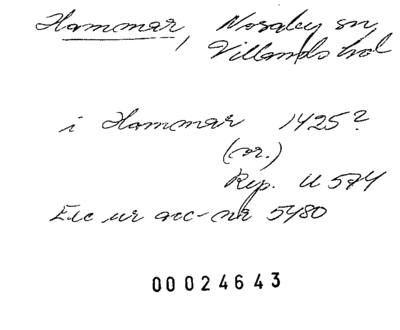 Hammar, Nosaby sn,
Villands hd
i Hammar 1425?
(or.)
Rep. U 574
Exc ur acc-nr 5480
00024643